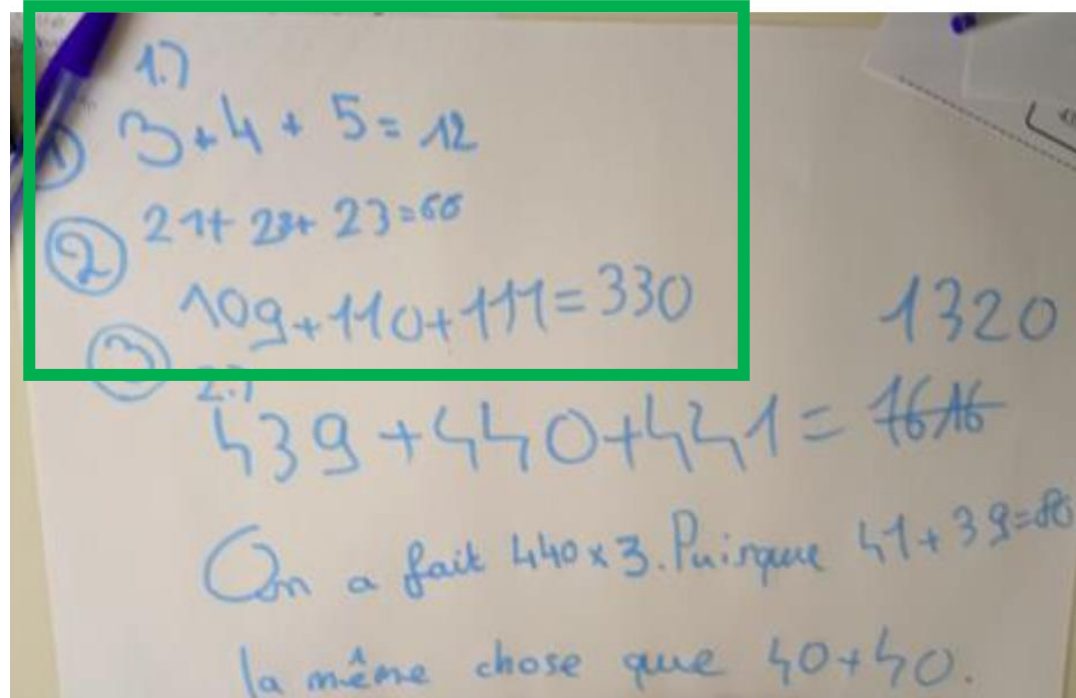 1.)
① 3+4+5=12
② 21+22+23=66
③ 109+110+111=330
2.) 1320
439+440+441= 1616
On a fait 440x3. Puisque 41+39=80
la même chose que 40+40.